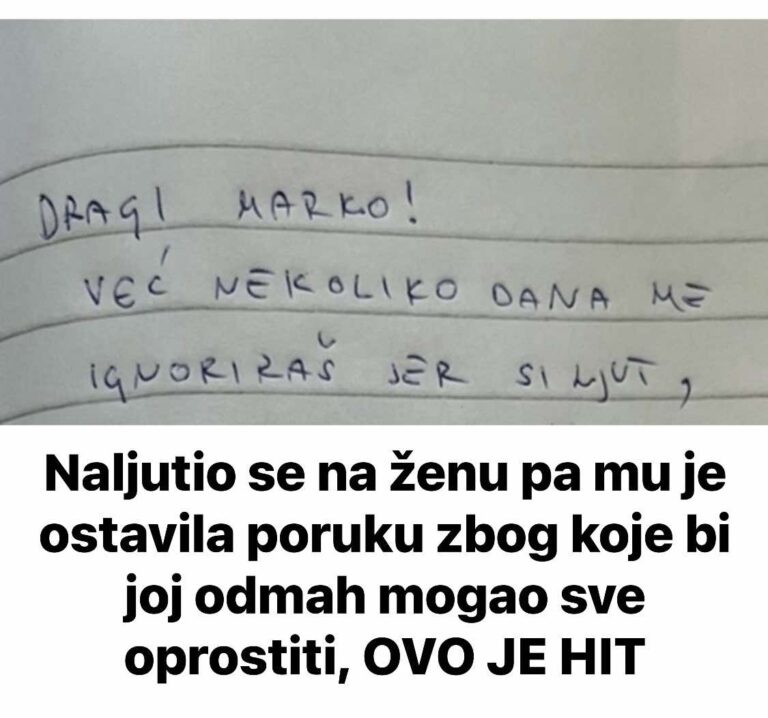 DRAGI MARKO!
VEĆ NEKOLIKO DANA ME
IGNORIRAŠ JER SI LJUT,
Naljutio se na ženu pa mu je
ostavila poruku zbog koje bi
joj odmah mogao sve
oprostiti, OVO JE HIT